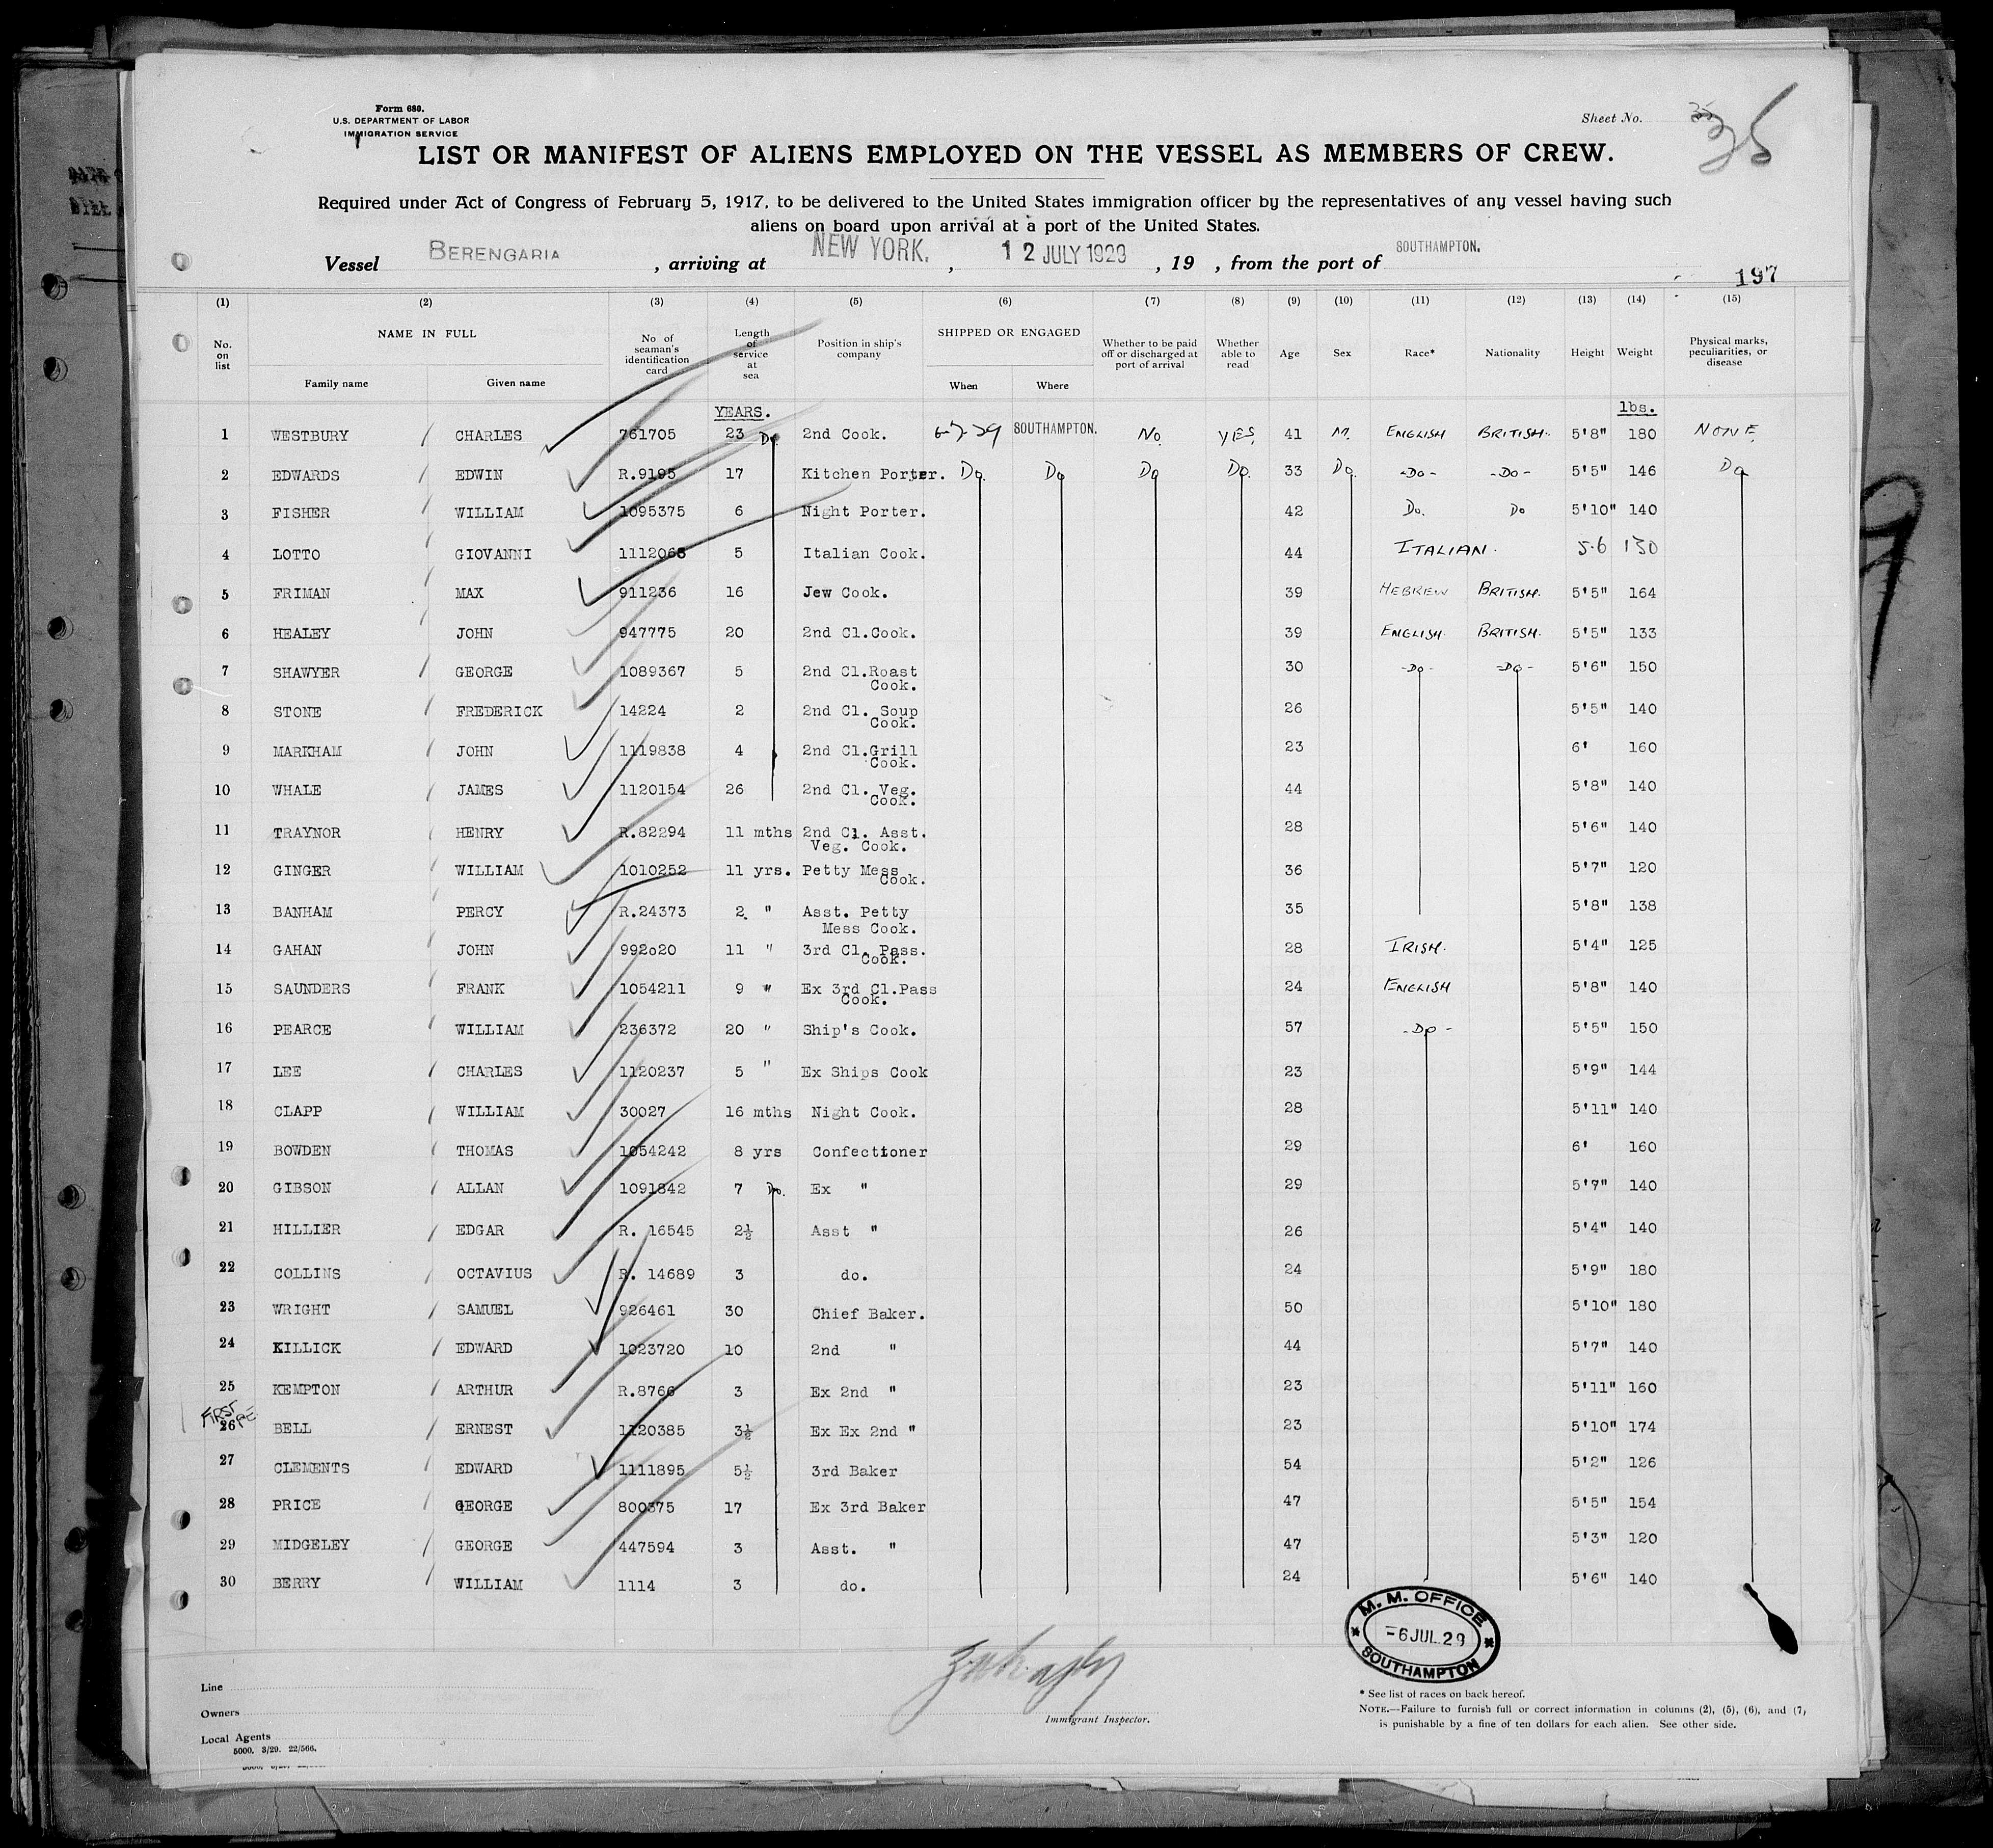 Form 680.
U.S. DEPARTMENT OF LABOR
IMMIGRATION SERVICE
Sheet No. 35
LIST OR MANIFEST OF ALIENS EMPLOYED ON THE VESSEL AS MEMBERS OF CREW.
Required under Act of Congress of February 5, 1917, to be delivered to the United States immigration officer by the representatives of any vessel having such
aliens on board upon arrival at a port of the United States.
Vessel BERENGARIA, arriving at NEW YORK., 12 JULY 1929, 19 , from the port of SOUTHAMPTON.
197
(1) (2) (3) (4) (5) (6) (7) (8) (9) (10) (11) (12) (13) (14) (15)
No. on list NAME IN FULL Family name Given name No of seaman's identification card Length of service at sea Position in ship's company SHIPPED OR ENGAGED When Where Whether to be paid off or discharged at port of arrival Whether able to read Age Sex Race* Nationality Height Weight Physical marks, peculiarities, or disease
YEARS. lbs.
1 WESTBURY CHARLES 761705 23 Do. 2nd Cook. 6-7-29 SOUTHAMPTON. No. YES. 41 M. ENGLISH BRITISH. 5'8" 180 NONE.
2 EDWARDS EDWIN R.9195 17 Kitchen Porter. Do. Do Do Do. 33 Do. -Do- -Do- 5'5" 146 Do
3 FISHER WILLIAM 1095375 6 Night Porter. 42 Do. Do 5'10" 140
4 LOTTO GIOVANNI 1112068 5 Italian Cook. 44 ITALIAN. 5.6 130
5 FRIMAN MAX 911236 16 Jew Cook. 39 HEBREW BRITISH. 5'5" 164
6 HEALEY JOHN 947775 20 2nd Cl.Cook. 39 ENGLISH. BRITISH. 5'5" 133
7 SHAWYER GEORGE 1089367 5 2nd Cl.Roast Cook. 30 -Do- -Do- 5'6" 150
8 STONE FREDERICK 14224 2 2nd Cl. Soup Cook. 26 5'5" 140
9 MARKHAM JOHN 1119838 4 2nd Cl.Grill Cook. 23 6' 160
10 WHALE JAMES 1120154 26 2nd Cl. Veg. Cook. 44 5'8" 140
11 TRAYNOR HENRY R.82294 11 mths 2nd Cl. Asst. Veg. Cook. 28 5'6" 140
12 GINGER WILLIAM 1010252 11 yrs. Petty Mess Cook. 36 5'7" 120
13 BANHAM PERCY R.24373 2 " Asst. Petty Mess Cook. 35 5'8" 138
14 GAHAN JOHN 992020 11 " 3rd Cl. Pass. Cook. 28 IRISH. 5'4" 125
15 SAUNDERS FRANK 1054211 9 " Ex 3rd Cl.Pass Cook. 24 ENGLISH 5'8" 140
16 PEARCE WILLIAM 236372 20 " Ship's Cook. 57 -Do- 5'5" 150
17 LEE CHARLES 1120237 5 " Ex Ships Cook 23 5'9" 144
18 CLAPP WILLIAM 30027 16 mths Night Cook. 28 5'11" 140
19 BOWDEN THOMAS 1054242 8 yrs Confectioner 29 6' 160
20 GIBSON ALLAN 1091842 7 Do. Ex " 29 5'7" 140
21 HILLIER EDGAR R. 16545 2½ Asst " 26 5'4" 140
22 COLLINS OCTAVIUS R. 14689 3 do. 24 5'9" 180
23 WRIGHT SAMUEL 926461 30 Chief Baker. 50 5'10" 180
24 KILLICK EDWARD 1023720 10 2nd " 44 5'7" 140
25 KEMPTON ARTHUR R.8766 3 Ex 2nd " 23 5'11" 160
FIRST
26 BELL ERNEST 1120385 3½ Ex Ex 2nd " 23 5'10" 174
27 CLEMENTS EDWARD 1111895 5½ 3rd Baker 54 5'2" 126
28 PRICE GEORGE 800375 17 Ex 3rd Baker 47 5'5" 154
29 MIDGELEY GEORGE 447594 3 Asst. " 47 5'3" 120
30 BERRY WILLIAM 1114 3 do. 24 5'6" 140
M. M. OFFICE
-6 JUL.29
SOUTHAMPTON
Line
Owners
Local Agents
5000. 3/29. 22/566.
Immigrant Inspector.
* See list of races on back hereof.
NOTE.—Failure to furnish full or correct information in columns (2), (5), (6), and (7,
is punishable by a fine of ten dollars for each alien. See other side.